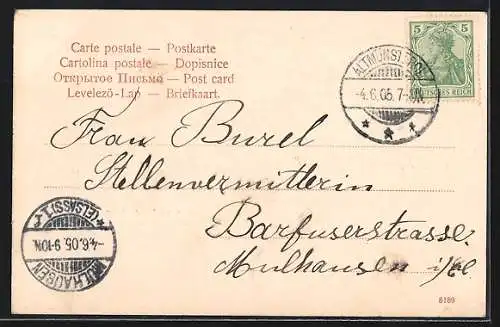 Carte postale — Postkarte
Cartolina postale — Dopisnice
Открытое Письмо — Post card
Levelező-Lap — Briefkaart.
5 5
DEUTSCHES REICH
ALTMÜNSTEROL
-4.6.05. 7-8N.
Frau Burel
Stellenvermittlerin
Barfuserstrasse.
Mulhausen i/El.
MÜLHAUSEN
-4.6.05. 9-10N.
(ELSASS) 1.
5189